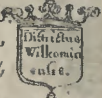 Districtus
Wilkomir
ensis.